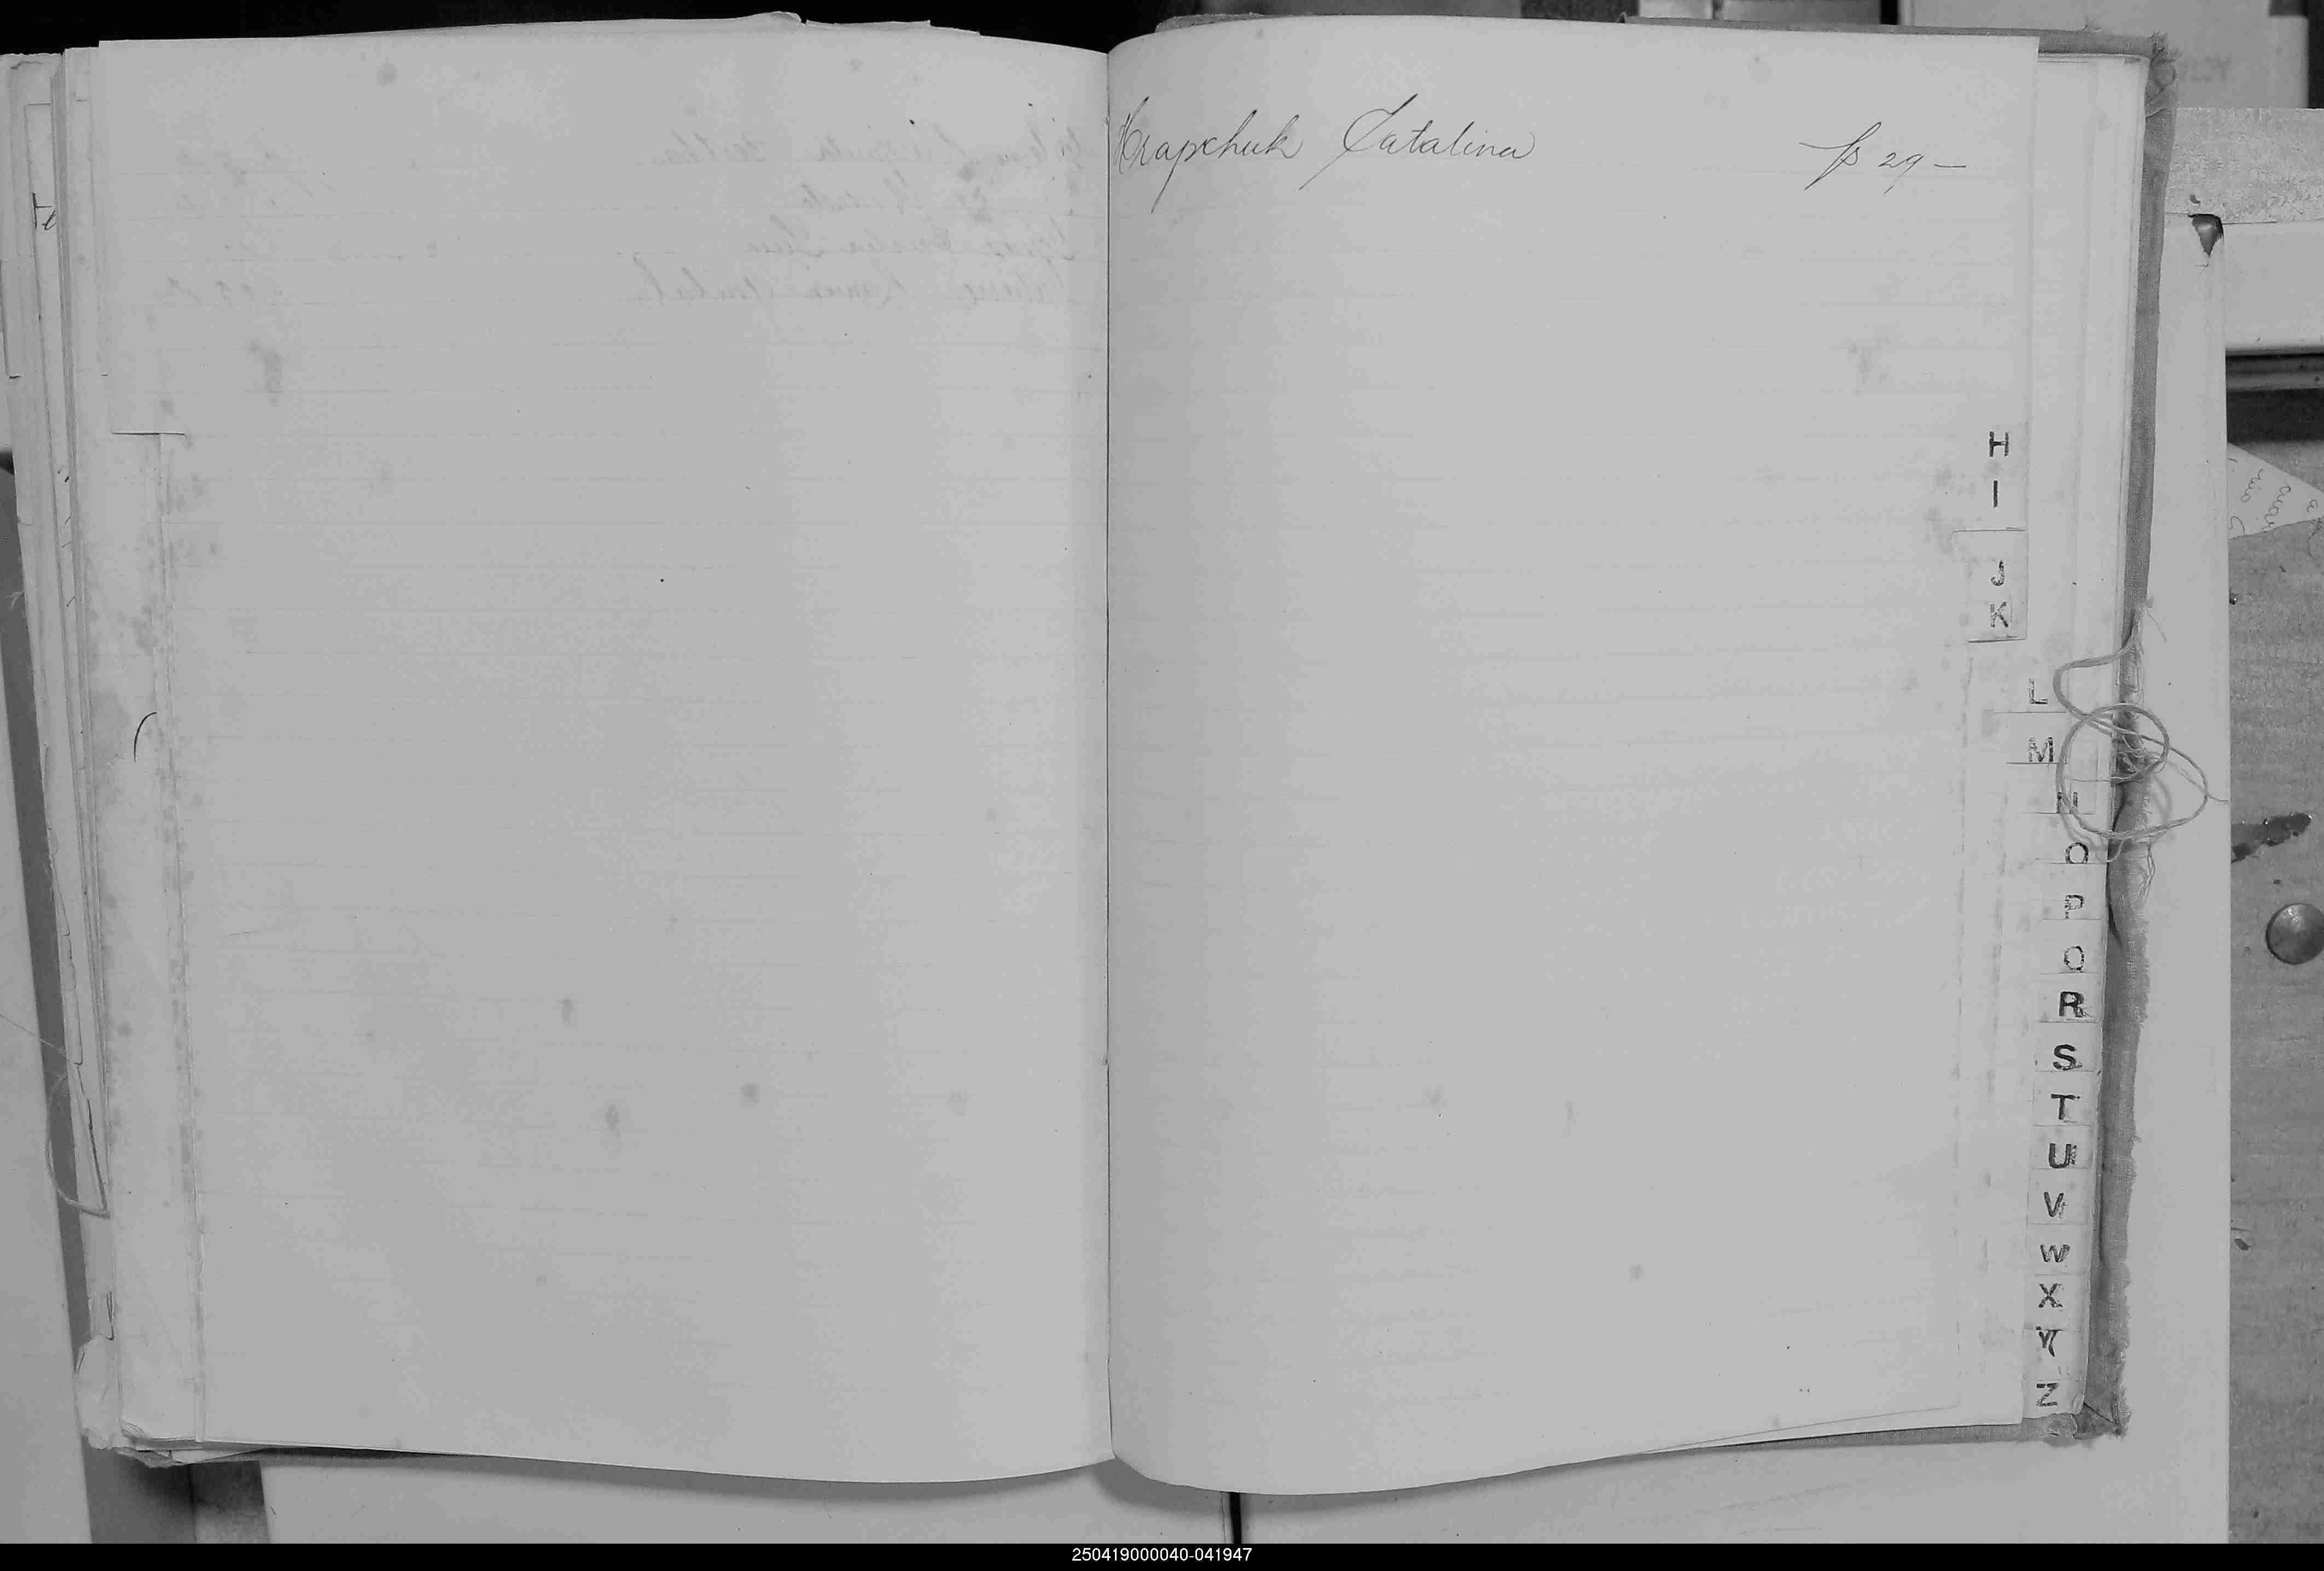 Hrapchuk Catalina fs 29-
H
I
J
K
L
M
N
O
P
Q
R
S
T
U
V
W
X
Y
Z
250419000040-041947